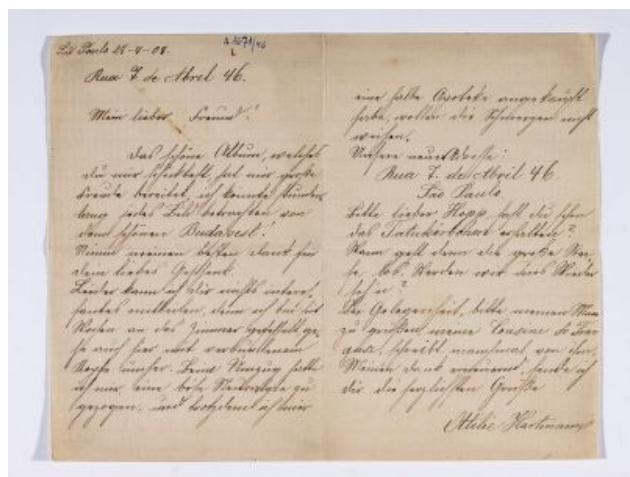 São Paulo 28-4-08.
A 1671/46
Rua 7 de Abril 46.
Mein lieber Freund!
Das schöne Album, welches
du mir schicktest, hat mir große
Freude bereitet, ich könnte stunden
lang jedes Bild betrachten von
dem schönen Budapest!
Nimm meinen besten Dank für
dein liebes Geschenk.
Leider kann ich dir nichts interes-
santes mitteilen, denn ich bin seit
Wochen an das Zimmer gefesselt, ge-
he auch hier mit verbundenem
Kopfe umher. Beim Umzug hatte
ich mir eine böse Neuralgie zu
gezogen, und trotzdem ich hier
eine halbe Apoteke angekauft
habe, wollen die Schmerzen nicht
weichen.
Unsere neue Adresse:
Rua 7. de Abril 46
São Paulo
Bitte lieber Hopp, hast du schon
das erhalten?
Wann geht denn die große Rei-
se los. Werden wir uns Wieder
sehen?
Bei Gelegenheit, bitte meinen
zu grüßen meine Cousine
schreibt manchmal von ihm.
Meinen Dank erneuernd, sende ich
dir die herzlichsten Grüße
Otilie Hartmann